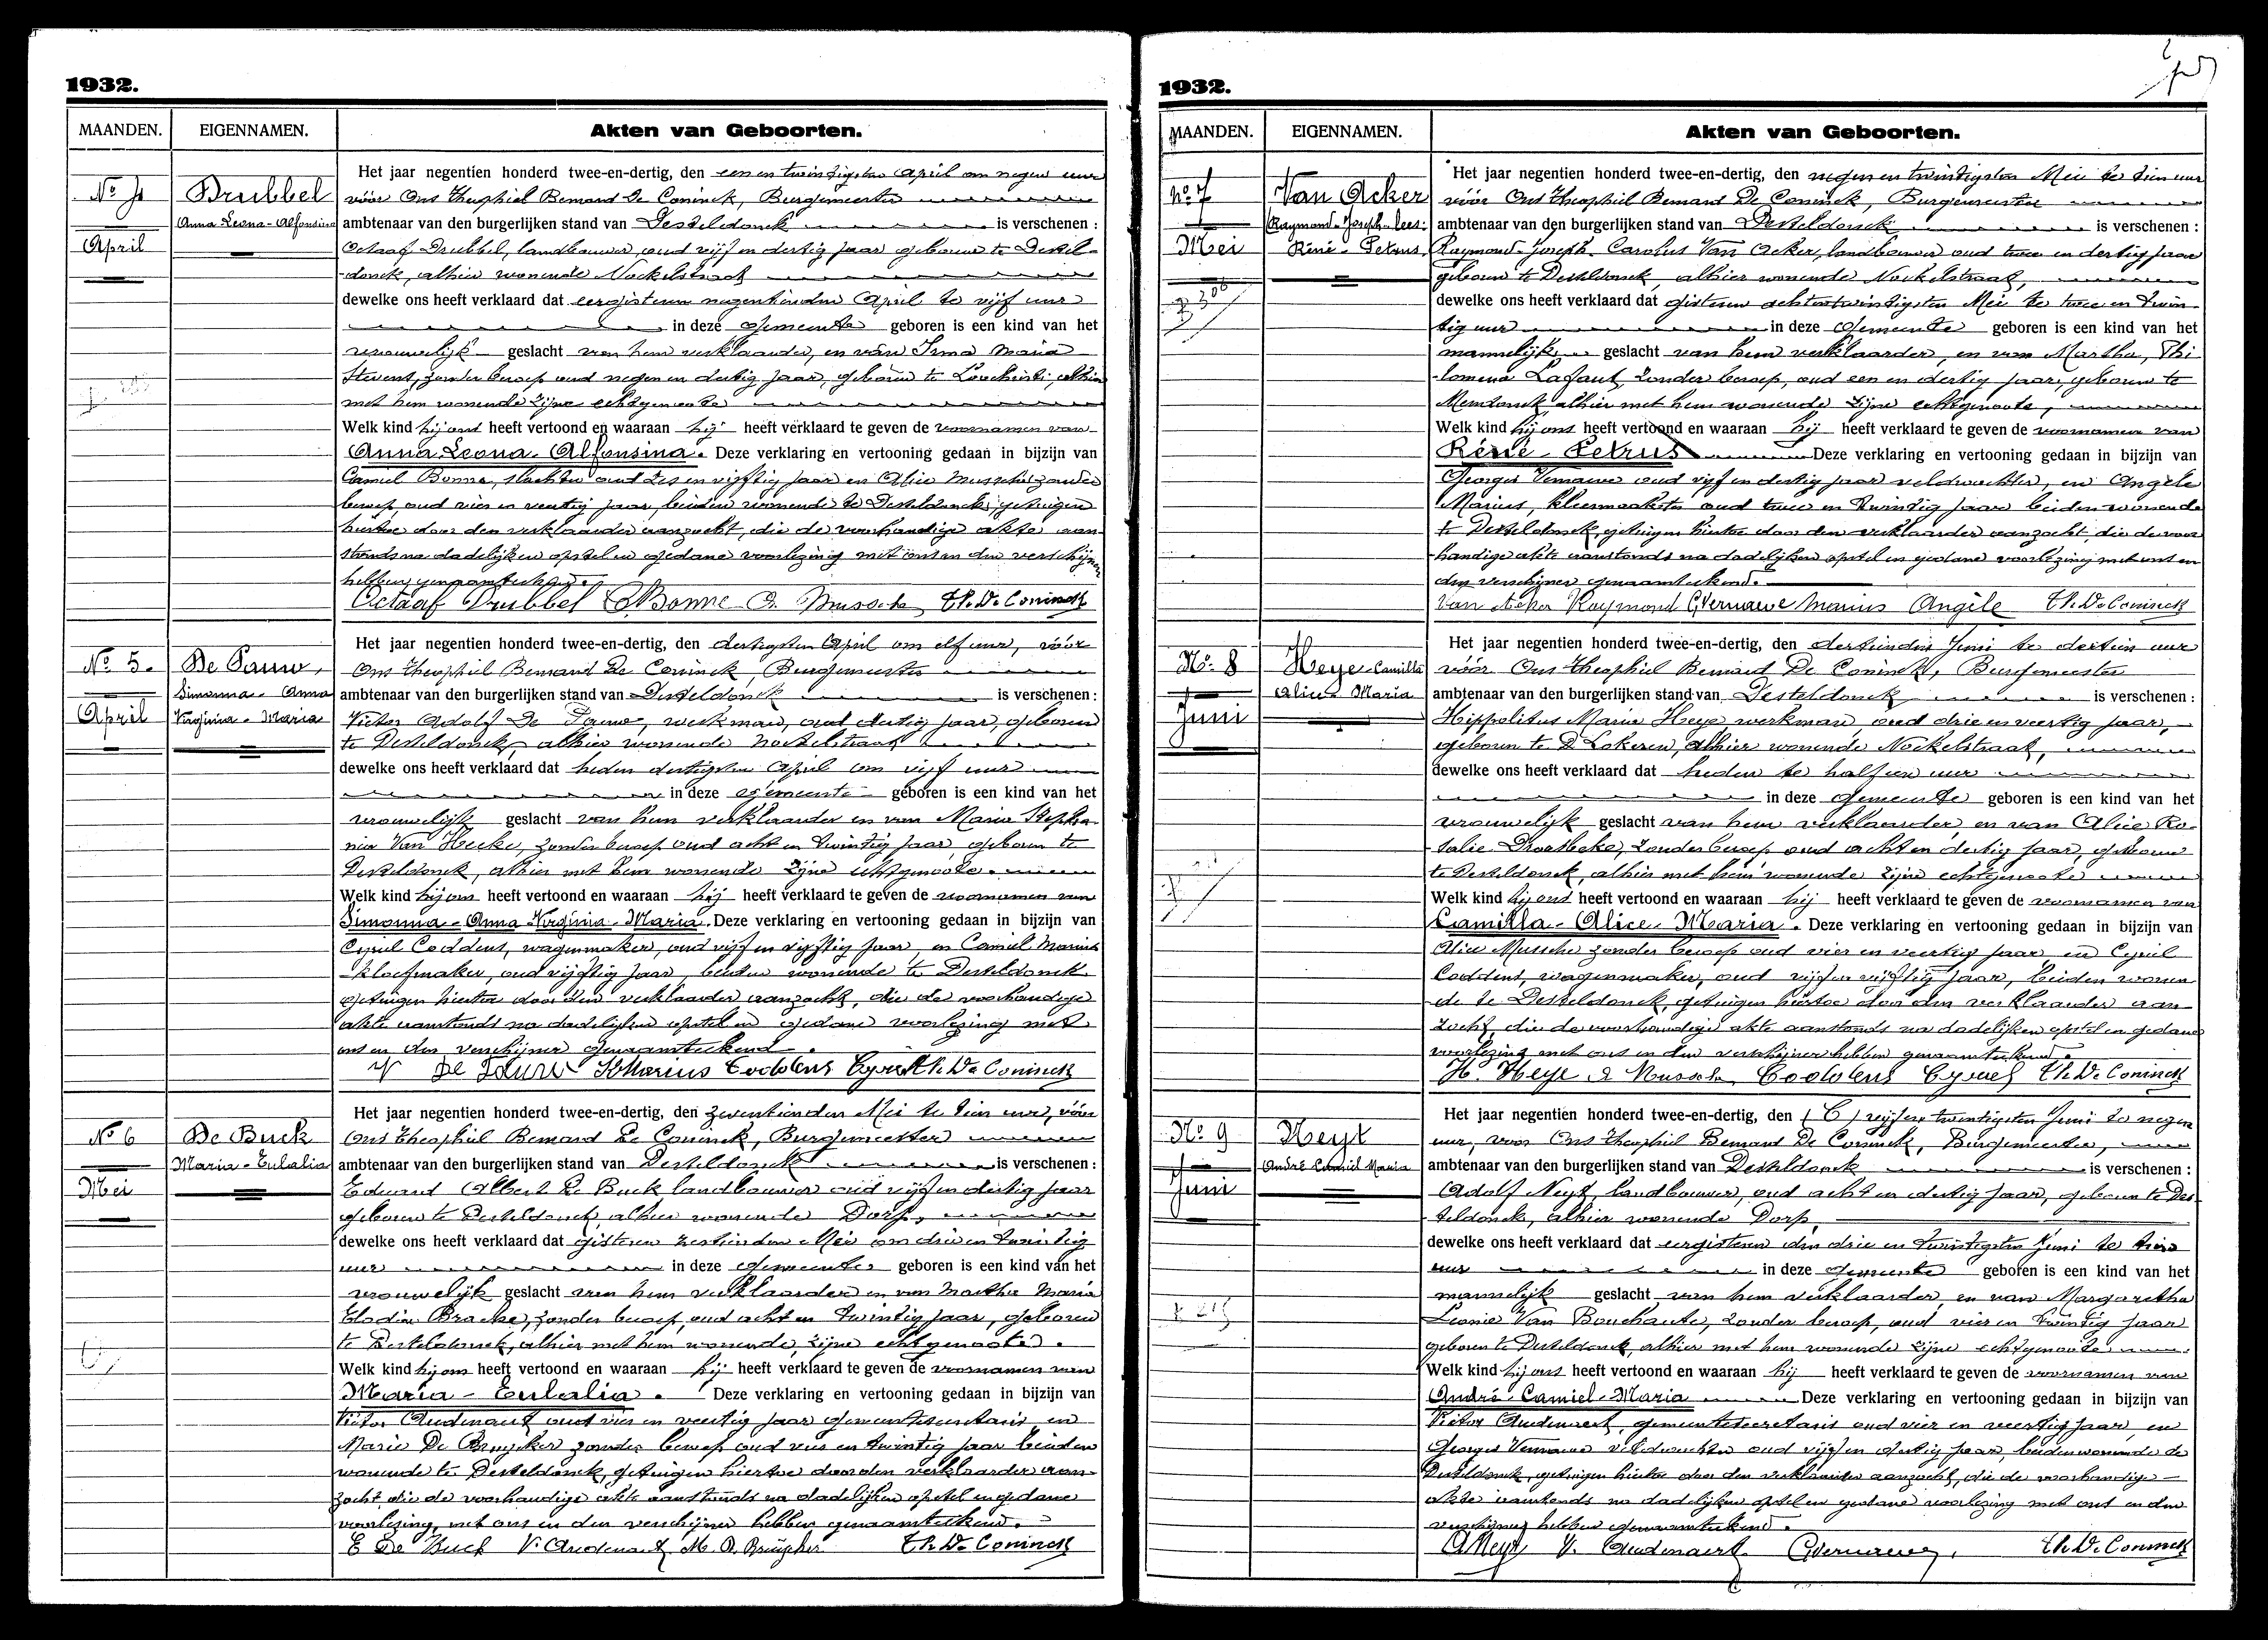 1932.
MAANDEN. EIGENNAMEN. Akten van Geboorten.
Het jaar negentien honderd twee-en-dertig, den een en twintigsten April om negen uur
No Drubbel vóór Ons Theophiel Bernard De Coninck, Burgemeester
Anna-Leona-Alfonsina ambtenaar van den burgerlijken stand van Desteldonck is verschenen :
April Octaaf Drubbel, landbouwer, oud vijf en dertig jaar geboren te Destel-
donck, alhier wonende Nockelstraat
dewelke ons heeft verklaard dat eergisteren negentienden April te vijf uur
in deze gemeente geboren is een kind van het
vrouwelijk geslacht van hem verklaarder, en van Irma Maria
Stevens, zonder beroep oud negen en dertig jaar, geboren te Loochristi, alhier
met hem wonende zijne echtgenoote
Welk kind hij ons heeft vertoond en waaraan hij heeft verklaard te geven de voornamen van
Anna Leona Alfonsina. Deze verklaring en vertooning gedaan in bijzijn van
Camiel Bonne, slachter oud zes en vijftig jaar en Alice Mussche zonder
beroep, oud vier en veertig jaar, beiden wonende te Desteldonck, getuigen
hiertoe door den verklaarder aanzocht, die de voorhandige akte aan-
stonds na dadelijken opstel en gedane voorlezing met ons en den verschijner
hebben genaamteekend.
Octaaf Drubbel Bonne A. Mussche Th. De Coninck
Het jaar negentien honderd twee-en-dertig, den dertigsten April om elf uur, vóór
No 5. De Pauw, Ons Theophiel Bernard De Coninck, Burgemeester
Simonna-Anna ambtenaar van den burgerlijken stand van Desteldonck is verschenen :
April Virginia-Maria Victor Adolf De Pauw, werkman, oud dertig jaar, geboren
te Desteldonck, alhier wonende Nockelstraat
dewelke ons heeft verklaard dat heden dertigsten April om vijf uur
in deze gemeente geboren is een kind van het
vrouwelijk geslacht van hem verklaarder en van Maria Stepha-
nia Van Hecke, zonder beroep oud acht en twintig jaar, geboren te
Desteldonck, alhier met hem wonende zijne echtgenoote.
Welk kind hij ons heeft vertoond en waaraan hij heeft verklaard te geven de voornamen van
Simonna-Anna Virginia-Maria. Deze verklaring en vertooning gedaan in bijzijn van
Cyriel Coddens, wagenmaker, oud vijf en vijftig jaar, en Camiel Marius
kloefmaker, oud vijftig jaar, beiden wonende te Desteldonck
getuigen hiertoe door den verklaarder aanzocht, die de voorhandige
akte aanstonds na dadelijken opstel en gedane voorlezing met
ons en den verschijner genaamteekend.
V De Pauw Marius Coddens Cyriel Th. De Coninck
Het jaar negentien honderd twee-en-dertig, den zeventienden Mei te tien uur, vóór
No 6 De Buck Ons Theophiel Bernard De Coninck, Burgemeester
Maria-Eulalia ambtenaar van den burgerlijken stand van Desteldonck is verschenen :
Mei Eduard Albert De Buck landbouwer oud vijf en dertig jaar
geboren te Desteldonck, alhier wonende Dorp,
dewelke ons heeft verklaard dat gisteren zestienden Mei om drie en twintig
uur in deze gemeente geboren is een kind van het
vrouwelijk geslacht van hem verklaarder en van Martha Maria
Elodia Bracke, zonder beroep, oud acht en twintig jaar, geboren
te Desteldonck, alhier met hem wonende, zijne echtgenoote.
Welk kind hij ons heeft vertoond en waaraan hij heeft verklaard te geven de voornamen van
Maria-Eulalia. Deze verklaring en vertooning gedaan in bijzijn van
Victor Audenaert oud vier en veertig jaar gemeentesecretaris, en
Marie De Bruycker zonder beroep oud vier en twintig jaar beiden
wonende te Desteldonck, getuigen hiertoe door den verklaarder aan-
zocht, die de voorhandige akte aanstonds na dadelijken opstel en gedane
voorlezing, met ons en den verschijner hebben genaamteekend.
E De Buck V. Audenaert M. D. Bruycker Th. De Coninck
1932.
MAANDEN. EIGENNAMEN. Akten van Geboorten.
Het jaar negentien honderd twee-en-dertig, den negen en twintigsten Mei te tien uur
No 7 Van Acker vóór Ons Theophiel Bernard De Coninck, Burgemeester
Raymond-Joseph-lees: ambtenaar van den burgerlijken stand van Desteldonck is verschenen :
Mei René-Petrus. Raymond-Joseph Carolus Van Acker, landbouwer oud twee en dertig jaar
geboren te Desteldonck, alhier wonende Nockelstraat,
dewelke ons heeft verklaard dat gisteren achtentwintigsten Mei te twee en twin-
tig uur in deze gemeente geboren is een kind van het
mannelijk geslacht van hem verklaarder, en van Martha, Phi-
lomena Lafaut, zonder beroep, oud een en dertig jaar, geboren te
Mendonck, alhier met hem wonende zijne echtgenoote,
Welk kind hij ons heeft vertoond en waaraan hij heeft verklaard te geven de voornamen van
René-Petrus Deze verklaring en vertooning gedaan in bijzijn van
Georges Vernauwe oud vijf en dertig jaar veldwachter, en Angèle
Marius, kleermaakster oud twee en twintig jaar beiden wonende
te Desteldonck, getuigen hiertoe door den verklaarder aanzocht, die de voor-
handige akte aanstonds na dadelijken opstel en gedane voorlezing met ons en
den verschijner genaamteekend.
Van Acker Raymond G Vernauwe Marius Angèle Th. De Coninck
Het jaar negentien honderd twee-en-dertig, den dertienden Juni te dertien uur
No 8 Heye Camilla vóór Ons Theophiel Bernard De Coninck, Burgemeester
Alice Maria ambtenaar van den burgerlijken stand van Desteldonck is verschenen :
Juni Hippolitus Maria Heye werkman oud drie en veertig jaar,
geboren te Lokeren, alhier wonende Nockelstraat,
dewelke ons heeft verklaard dat heden te half een uur
in deze gemeente geboren is een kind van het
vrouwelijk geslacht van hem verklaarder, en van Alice Ro-
salie Droesbeke, zonder beroep oud acht en dertig jaar, geboren
te Desteldonck, alhier met hem wonende zijne echtgenoote
Welk kind hij ons heeft vertoond en waaraan hij heeft verklaard te geven de voornamen van
Camilla-Alice-Maria. Deze verklaring en vertooning gedaan in bijzijn van
Alice Mussche zonder beroep oud vier en veertig jaar, en Cyriel
Coddens, wagenmaker, oud vijf en vijftig jaar, beiden wonen-
de te Desteldonck, getuigen hiertoe door den verklaarder aan-
zocht, die de voorhandige akte aanstonds na dadelijken opstel en gedane
voorlezing met ons en den verschijner hebben genaamteekend.
H. Heye A Mussche Coddens Cyriel Th. De Coninck
Het jaar negentien honderd twee-en-dertig, den vijf en twintigsten Juni te negen
No 9 Neyt uur, vóór Ons Theophiel Bernard De Coninck, Burgemeester,
André Camiel Maria ambtenaar van den burgerlijken stand van Desteldonck is verschenen :
Juni Adolf Neyt, landbouwer, oud acht en dertig jaar, geboren te Des-
teldonck, alhier wonende Dorp,
dewelke ons heeft verklaard dat eergisteren den drie en twintigsten Juni te
uur in deze gemeente geboren is een kind van het
mannelijk geslacht van hem verklaarder, en van Margaretha
Leonie Van Bouchaute, zonder beroep, oud vier en twintig jaar
geboren te Desteldonck, alhier met hem wonende zijne echtgenoote
Welk kind hij ons heeft vertoond en waaraan hij heeft verklaard te geven de voornamen van
André-Camiel-Maria Deze verklaring en vertooning gedaan in bijzijn van
Victor Audenaert, gemeentesecretaris oud vier en veertig jaar, en
Georges Vernauwe veldwachter oud vijf en dertig jaar, beiden wonende te
Desteldonck, getuigen hiertoe door den verklaarder aanzocht, die de voorhandige
akte aanstonds na dadelijken opstel en gedane voorlezing met ons en den
verschijner hebben genaamteekend.
A Neyt V. Audenaert G Vernauwe, Th. De Coninck